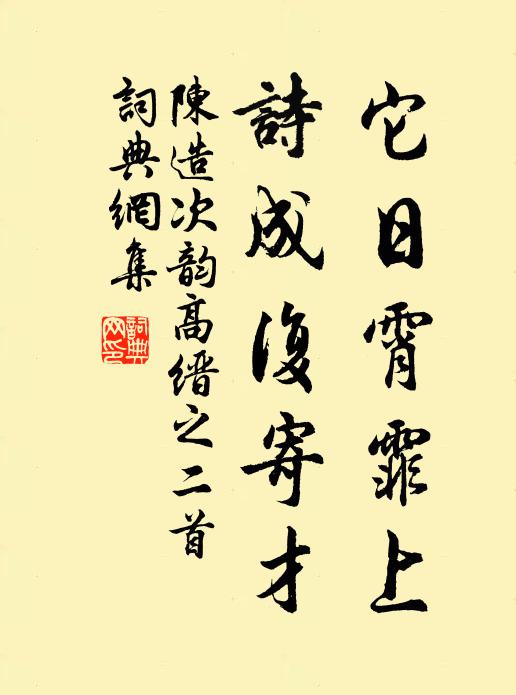 它日霄霏上
詩成復寄才
陳造次韵高缙之二首
詞典網集
詞典網印